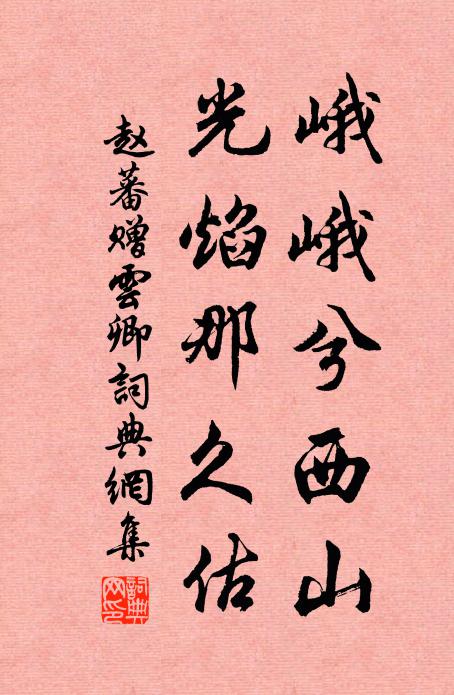 峨峨兮西山
光焰那久估
赵蕃赠雲卿詞典網集
詞典網印